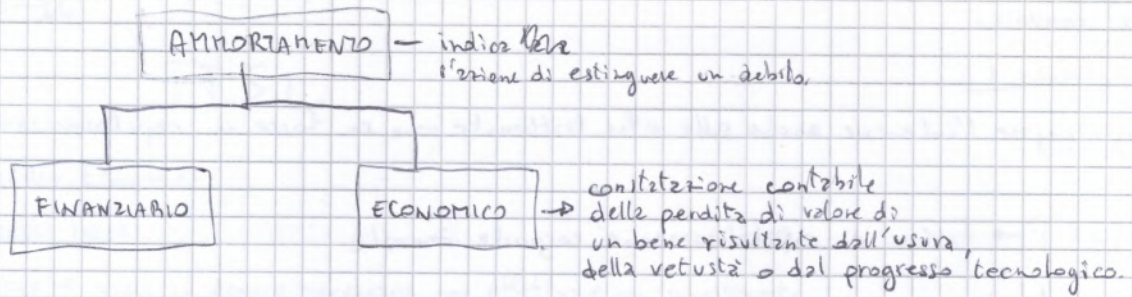 AMMORTAMENTO — indica
l'azione di estinguere un debito.
FINANZIARIO
ECONOMICO → constatazione contabile
della perdita di valore di
un bene risultante dall'usura,
della vetustà o dal progresso tecnologico.